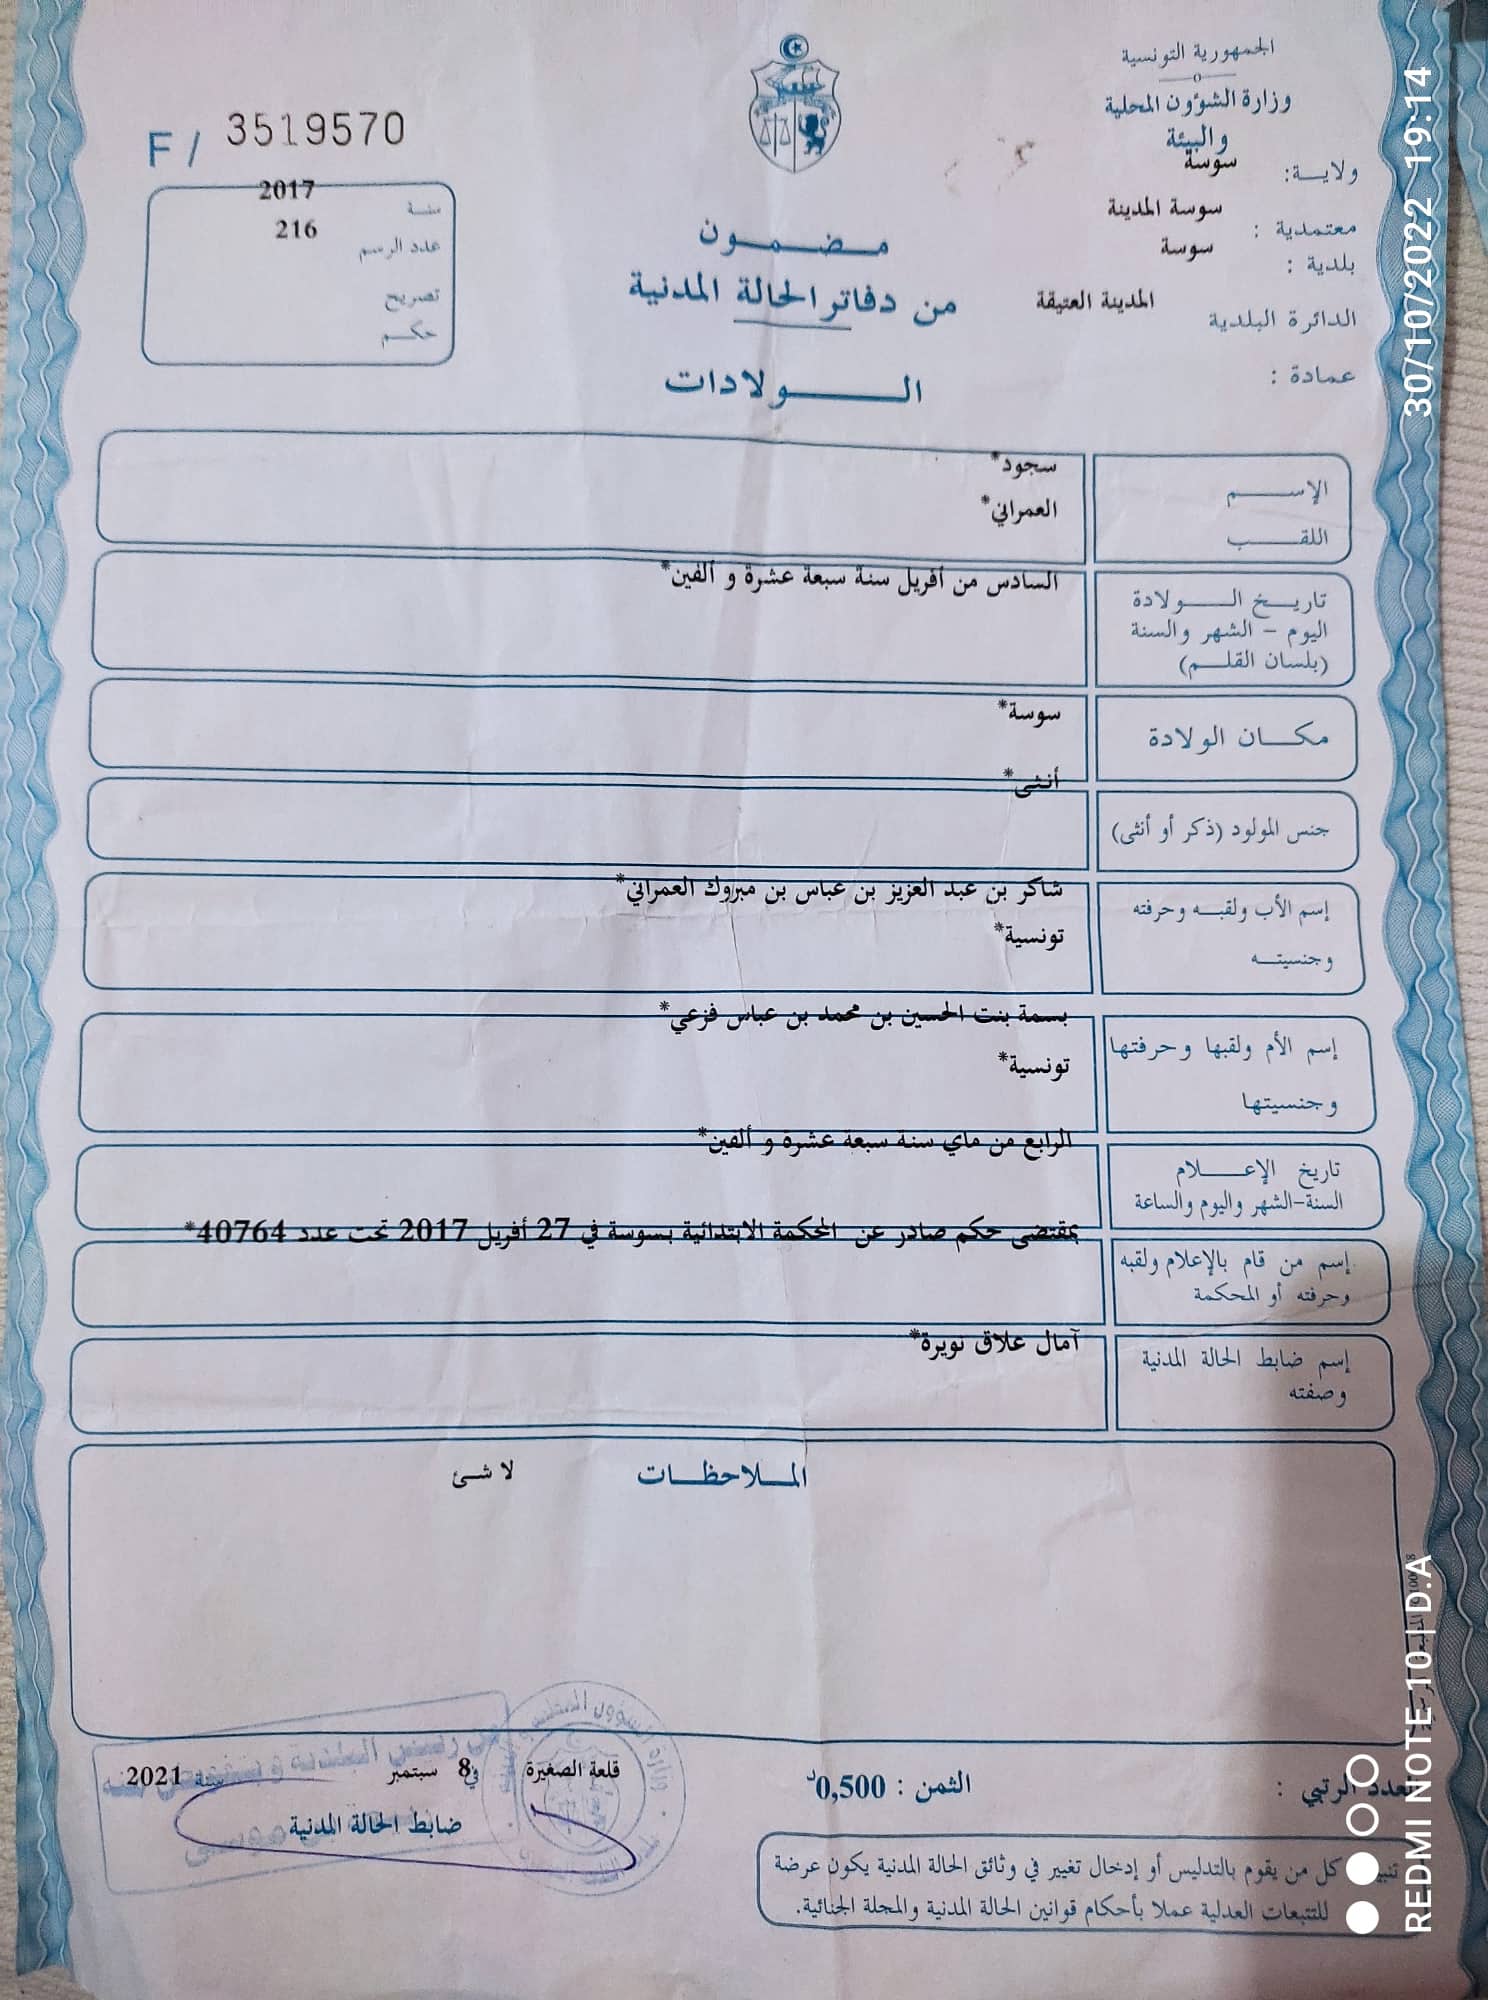 الجمهورية التونسية
وزارة الشؤون المحلية
والبيئة
ولاية: سوسة
معتمدية : سوسة المدينة
بلدية : سوسة
الدائرة البلدية المدينة العتيقة
عمادة :
F / 3519570
سنة 2017
عدد الرسم 216
تصريح
حكم
مضمون
من دفاتر الحالة المدنية
الولادات
الإسم سجود*
اللقب العمراني*
تاريخ الولادة السادس من أفريل سنة سبعة عشرة و ألفين*
اليوم - الشهر والسنة
(بلسان القلم)
مكان الولادة سوسة*
جنس المولود (ذكر أو أنثى) أنثى*
إسم الأب ولقبه وحرفته شاكر بن عبد العزيز بن عباس بن مبروك العمراني*
وجنسيته تونسية*
إسم الأم ولقبها وحرفتها بسمة بنت الحسين بن محمد بن عباس فزعي*
وجنسيتها تونسية*
تاريخ الإعلام الرابع من ماي سنة سبعة عشرة و ألفين*
السنة-الشهر واليوم والساعة
إسم من قام بالإعلام ولقبه بمقتضى حكم صادر عن المحكمة الابتدائية بسوسة في 27 أفريل 2017 تحت عدد 40764*
وحرفته أو المحكمة
إسم ضابط الحالة المدنية آمال علاق نويرة*
وصفته
الملاحظات لا شئ
قلعة الصغيرة في 8 سبتمبر سنة 2021
ضابط الحالة المدنية
الثمن : 0,500د
العدد الرتبي :
كل من يقوم بالتدليس أو إدخال تغيير في وثائق الحالة المدنية يكون عرضة
للتتبعات العدلية عملا بأحكام قوانين الحالة المدنية والمجلة الجنائية.
30/10/2022 19:14
REDMI NOTE 10 | D.A